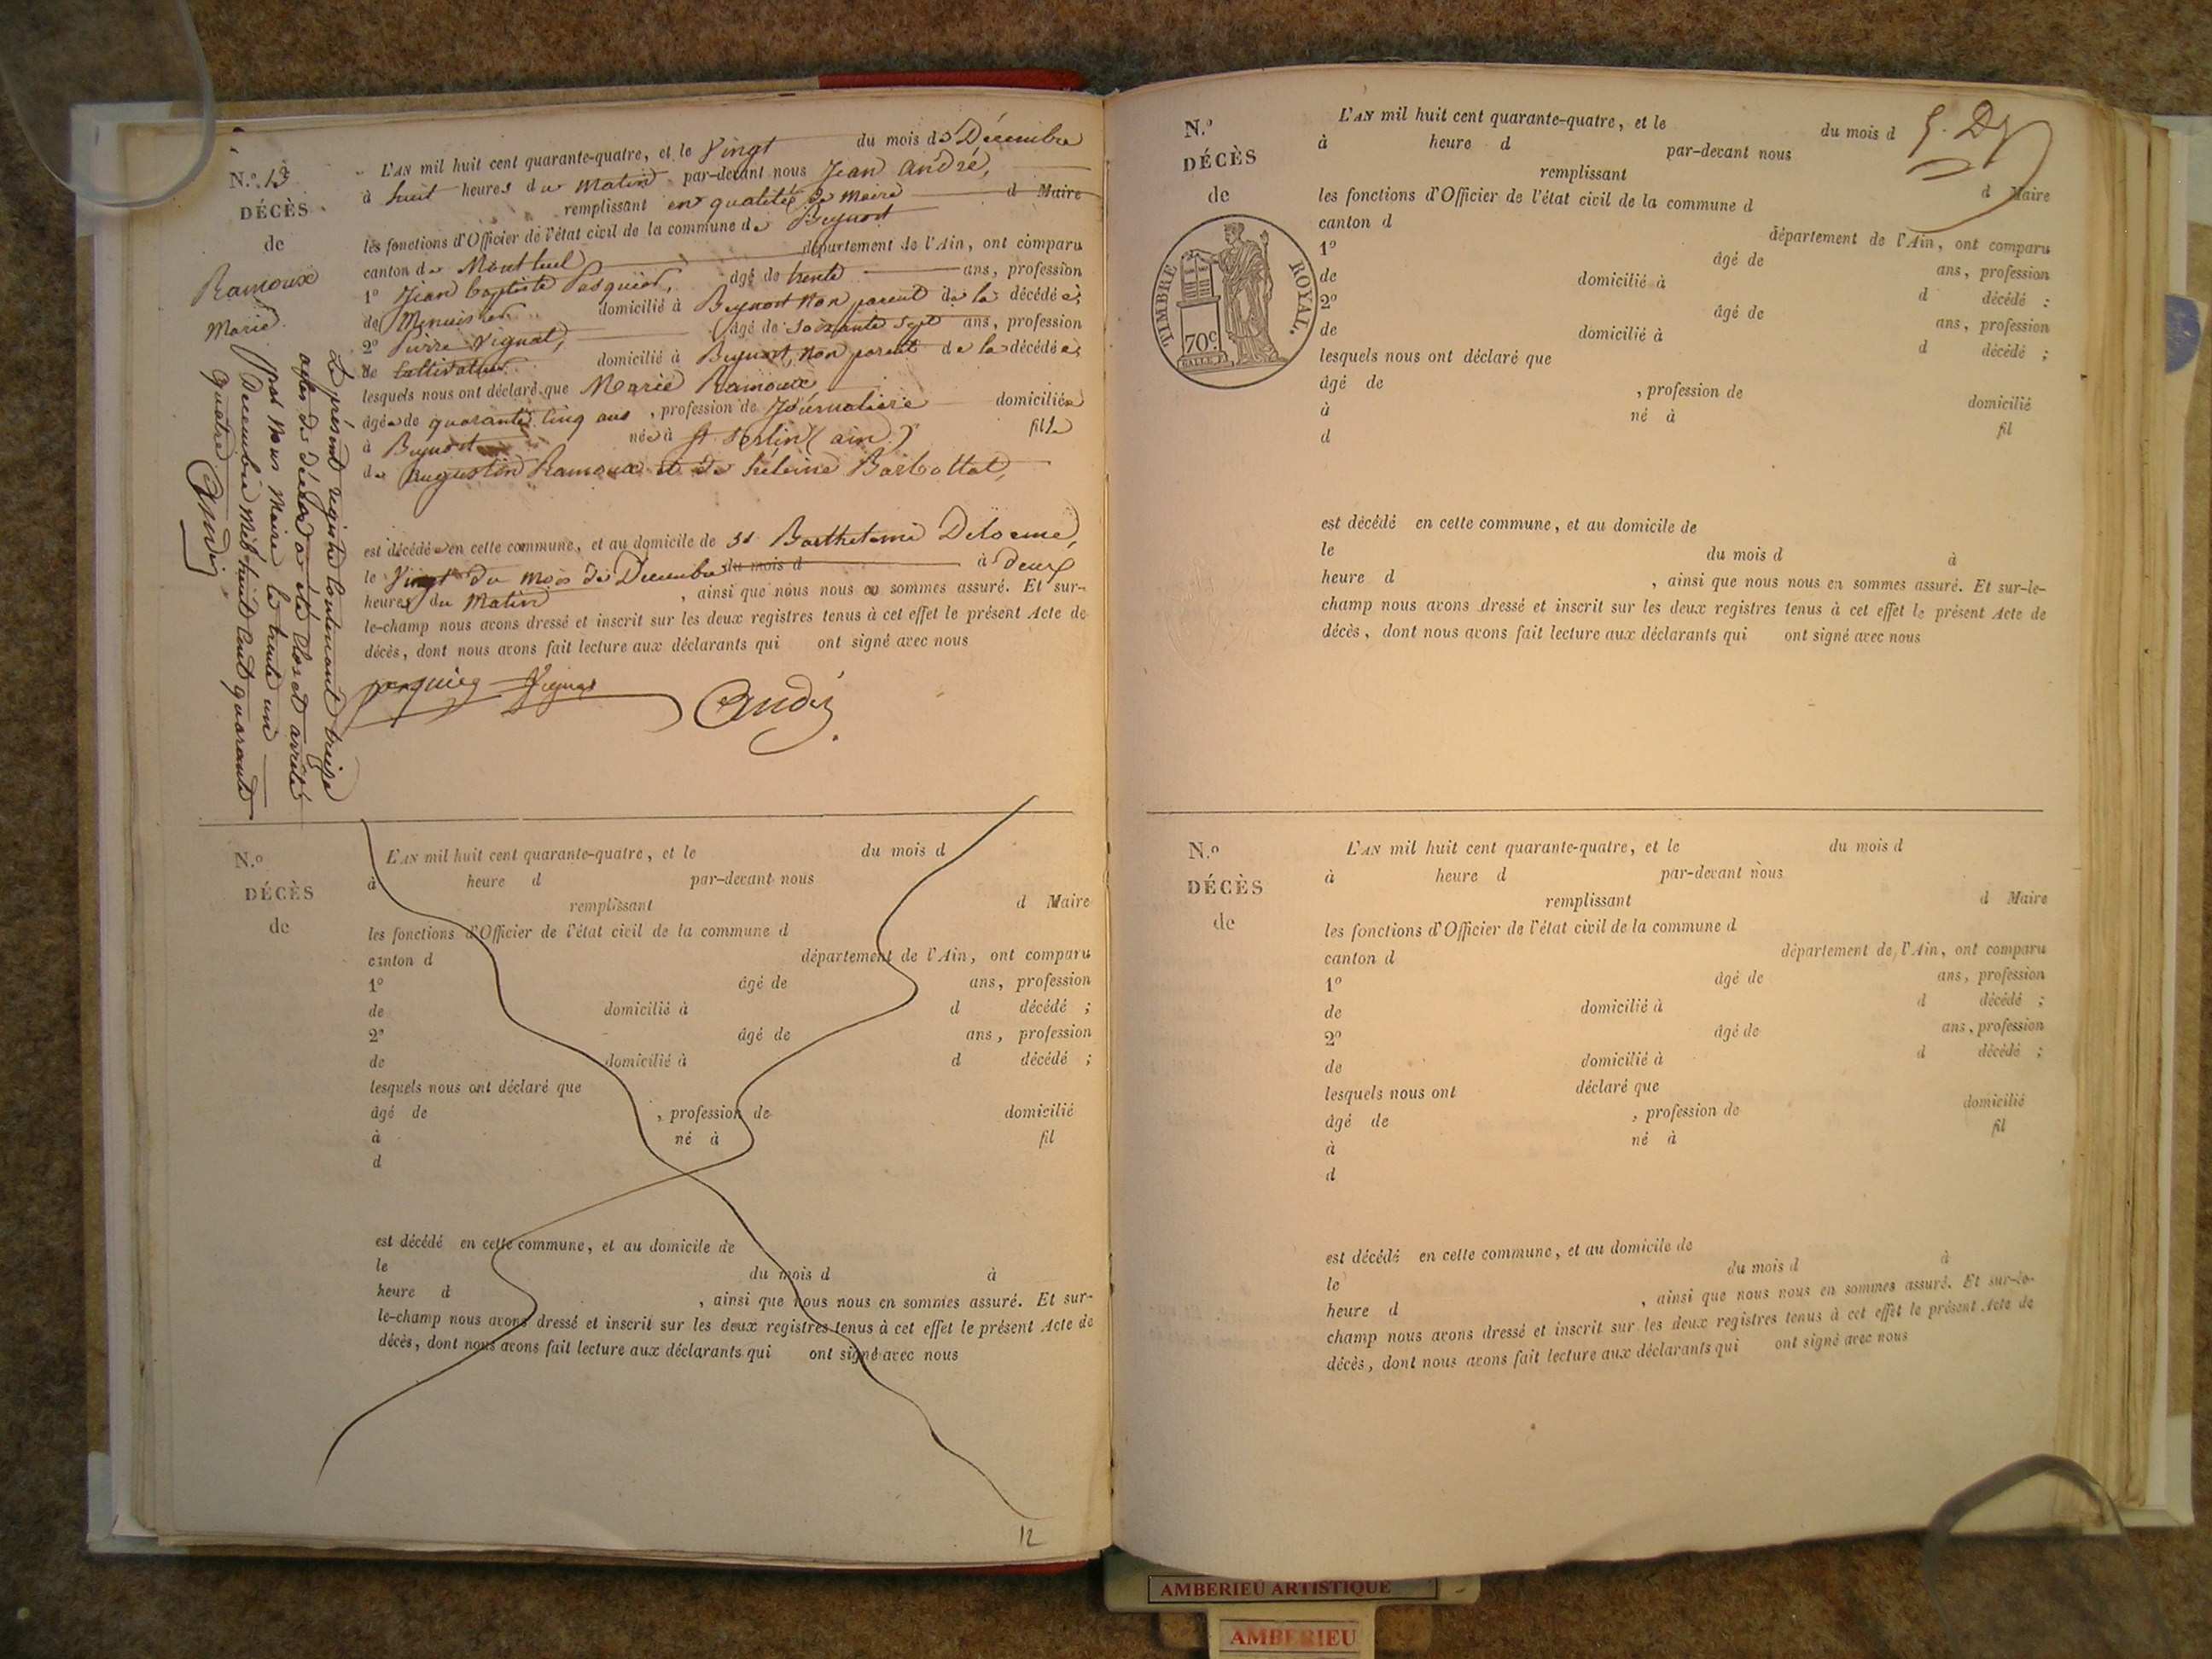 N.º 13
DÉCÈS
de
Ramoux
Marie
L'AN mil huit cent quarante-quatre, et le Vingt du mois de Décembre
à huit heures du Matin par-devant nous Jean André,
remplissant en qualité de Maire d Maire
les fonctions d'Officier de l'état civil de la commune de Beynost
canton de Montluel département de l'Ain, ont comparu
1º Jean Baptiste Pasquier, âgé de trente ans, profession
de Menuisier domicilié à Beynost non parent de la décédée;
2º Pierre Vignat, âgé de soixante sept ans, profession
de Cultivateur domicilié à Beynost, non parent de la décédée;
lesquels nous ont déclaré que Marie Ramoux
âgée de quarante cinq ans, profession de Journalière domiciliée
à Beynost née à St Sorlin (ain) fille
de Augustin Ramoux et de héleine Barbottat,
est décédée en cette commune, et au domicile de Barthelemi Delorme,
le Vingt du mois de Décembre du mois d à deux
heures du Matin, ainsi que nous nous en sommes assuré. Et sur-
le-champ nous avons dressé et inscrit sur les deux registres tenus à cet effet le présent Acte de
décès, dont nous avons fait lecture aux déclarants qui ont signé avec nous
pasquier Vignat André
Le présent registre contenant treize
actes de décès a été clos et arrêté
par nous Maire le trente un
Décembre Mil huit cent quarante
quatre
André
N.º
DÉCÈS
de
L'AN mil huit cent quarante-quatre, et le du mois d
à heure d par-devant nous
remplissant d Maire
les fonctions d'Officier de l'état civil de la commune d
canton d département de l'Ain, ont comparu
1º âgé de ans, profession
de domicilié à d décédé ;
2º âgé de ans, profession
de domicilié à d décédé ;
lesquels nous ont déclaré que
âgé de , profession de domicilié
à né à fil
d
est décédé en cette commune, et au domicile de
le du mois d à
heure d , ainsi que nous nous en sommes assuré. Et sur-
le-champ nous avons dressé et inscrit sur les deux registres tenus à cet effet le présent Acte de
décès, dont nous avons fait lecture aux déclarants qui ont signé avec nous
12
N.º
DÉCÈS
de
TIMBRE ROYAL.
70c.
L'AN mil huit cent quarante-quatre, et le du mois d
à heure d par-devant nous
remplissant d Maire
les fonctions d'Officier de l'état civil de la commune d
canton d département de l'Ain, ont comparu
1º âgé de ans, profession
de domicilié à d décédé ;
2º âgé de ans, profession
de domicilié à d décédé ;
lesquels nous ont déclaré que
âgé de , profession de domicilié
à né à fil
d
est décédé en cette commune, et au domicile de
le du mois d à
heure d , ainsi que nous nous en sommes assuré. Et sur-le-
champ nous avons dressé et inscrit sur les deux registres tenus à cet effet le présent Acte de
décès, dont nous avons fait lecture aux déclarants qui ont signé avec nous
N.º
DÉCÈS
de
L'AN mil huit cent quarante-quatre, et le du mois d
à heure d par-devant nous
remplissant d Maire
les fonctions d'Officier de l'état civil de la commune d
canton d département de l'Ain, ont comparu
1º âgé de ans, profession
de domicilié à d décédé ;
2º âgé de ans, profession
de domicilié à d décédé ;
lesquels nous ont déclaré que
âgé de , profession de domicilié
à né à fil
d
est décédé en cette commune, et au domicile de
le du mois d à
heure d , ainsi que nous nous en sommes assuré. Et sur-le-
champ nous avons dressé et inscrit sur les deux registres tenus à cet effet le présent Acte de
décès, dont nous avons fait lecture aux déclarants qui ont signé avec nous
AMBERIEU ARTISTIQUE
AMBERIEU